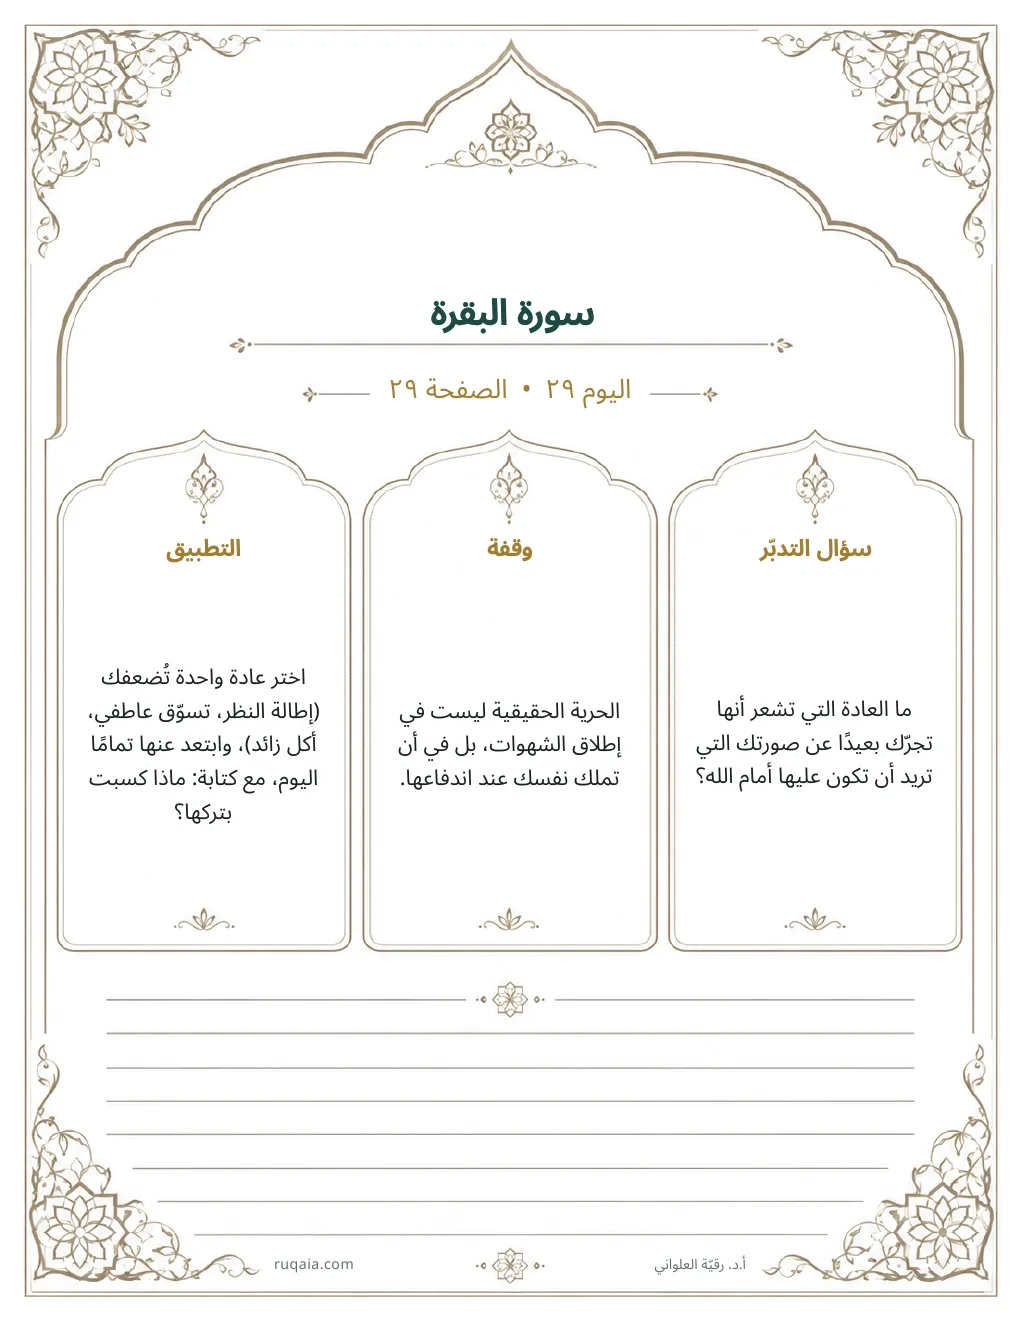 سورة البقرة
اليوم ٢٩ • الصفحة ٢٩
سؤال التدبّر
ما العادة التي تشعر أنها
تجرّك بعيدًا عن صورتك التي
تريد أن تكون عليها أمام الله؟
وقفة
الحرية الحقيقية ليست في
إطلاق الشهوات، بل في أن
تملك نفسك عند اندفاعها.
التطبيق
اختر عادة واحدة تُضعفك
(إطالة النظر، تسوّق عاطفي،
أكل زائد)، وابتعد عنها تمامًا
اليوم، مع كتابة: ماذا كسبت
بتركها؟
أ.د. رقيّة العلواني
ruqaia.com